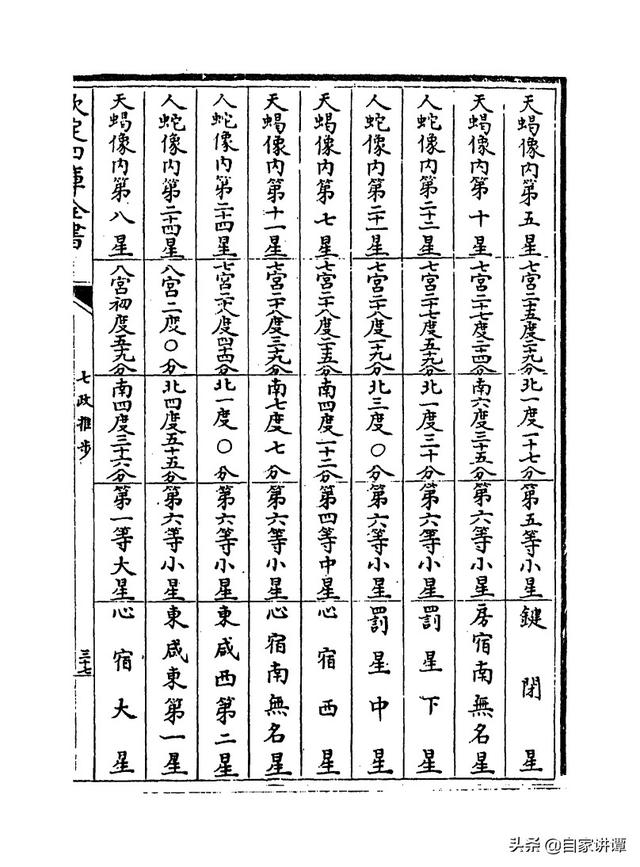 天蝎像内第五星 七宫二十五度二十九分 北一度一十七分 第五等小星 鍵閉星
天蝎像内第十星 七宫二十七度二十四分 南六度三十五分 第六等小星 房宿南無名星
人蛇像内第二十二星 七宫二十七度五十九分 北一度三十分 第六等小星 罰星下星
人蛇像内第二十一星 七宫二十八度二十九分 北三度〇分 第六等小星 罰星中星
天蝎像内第七星 七宫二十八度二十五分 南四度一十二分 第四等中星 心宿西星
天蝎像内第十一星 七宫二十八度三十九分 南七度七分 第六等小星 心宿南無名星
人蛇像内第二十四星 七宫二十八度四十四分 北一度〇分 第六等小星 東咸西第二星
人蛇像内第二十四星 八宫二度〇分 北四度五十五分 第六等小星 東咸東第一星
天蝎像内第八星 八宫初度五十九分 南四度三十六分 第一等大星 心宿大星
欽定四庫全書
七政推步
三十七
头条 @自家讲谭